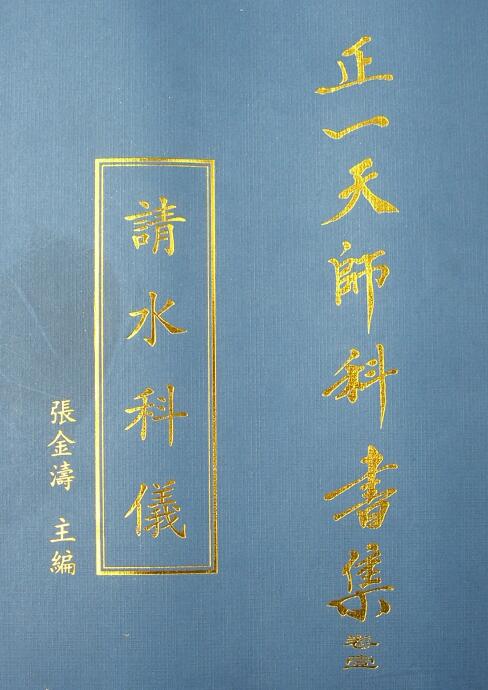 正一天師科書集
卷壹
請水科儀
張金濤 主編